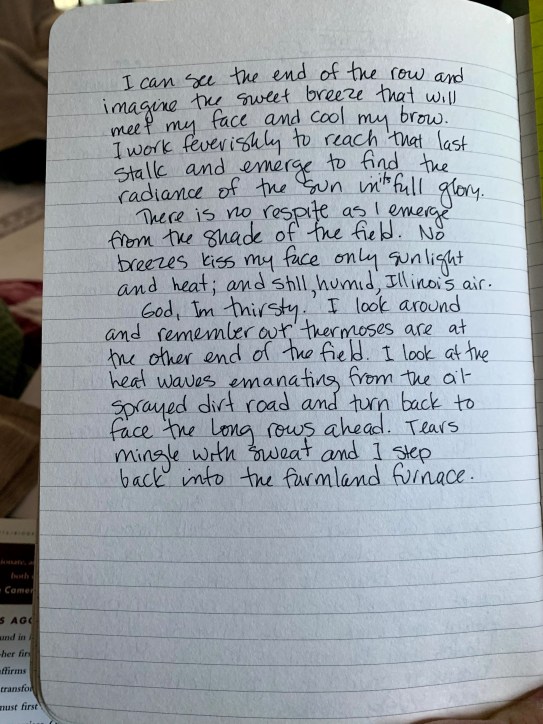 I can see the end of the row and
imagine the sweet breeze that will
meet my face and cool my brow.
I work feverishly to reach that last
stalk and emerge to find the
radiance of the sun in its full glory.
There is no respite as I emerge
from the shade of the field. No
breezes kiss my face only sunlight
and heat; and still, humid, Illinois air.
God, Im thirsty. I look around
and remember our thermoses are at
the other end of the field. I look at the
heat waves emanating from the oil-
sprayed dirt road and turn back to
face the long rows ahead. Tears
mingle with sweat and I step
back into the farmland furnace.
both
Camer
S AGO
und in
her fir
ffirms
transfo
must first